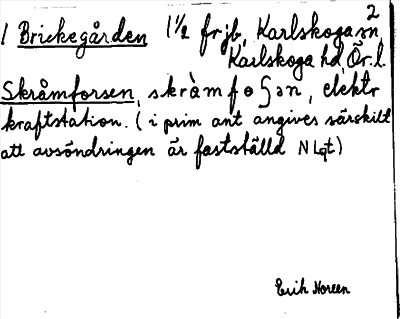 2
1 Brickegården 1 1/2 frjb, Karlskoga sn
Karlskoga hd, Ör. l.
Skråmforsen, skråmfoʃən, elektr
kraftstation. (i prim ant angives särskilt
att avsöndringen är fastställd N Lqt)
Erik Noreen